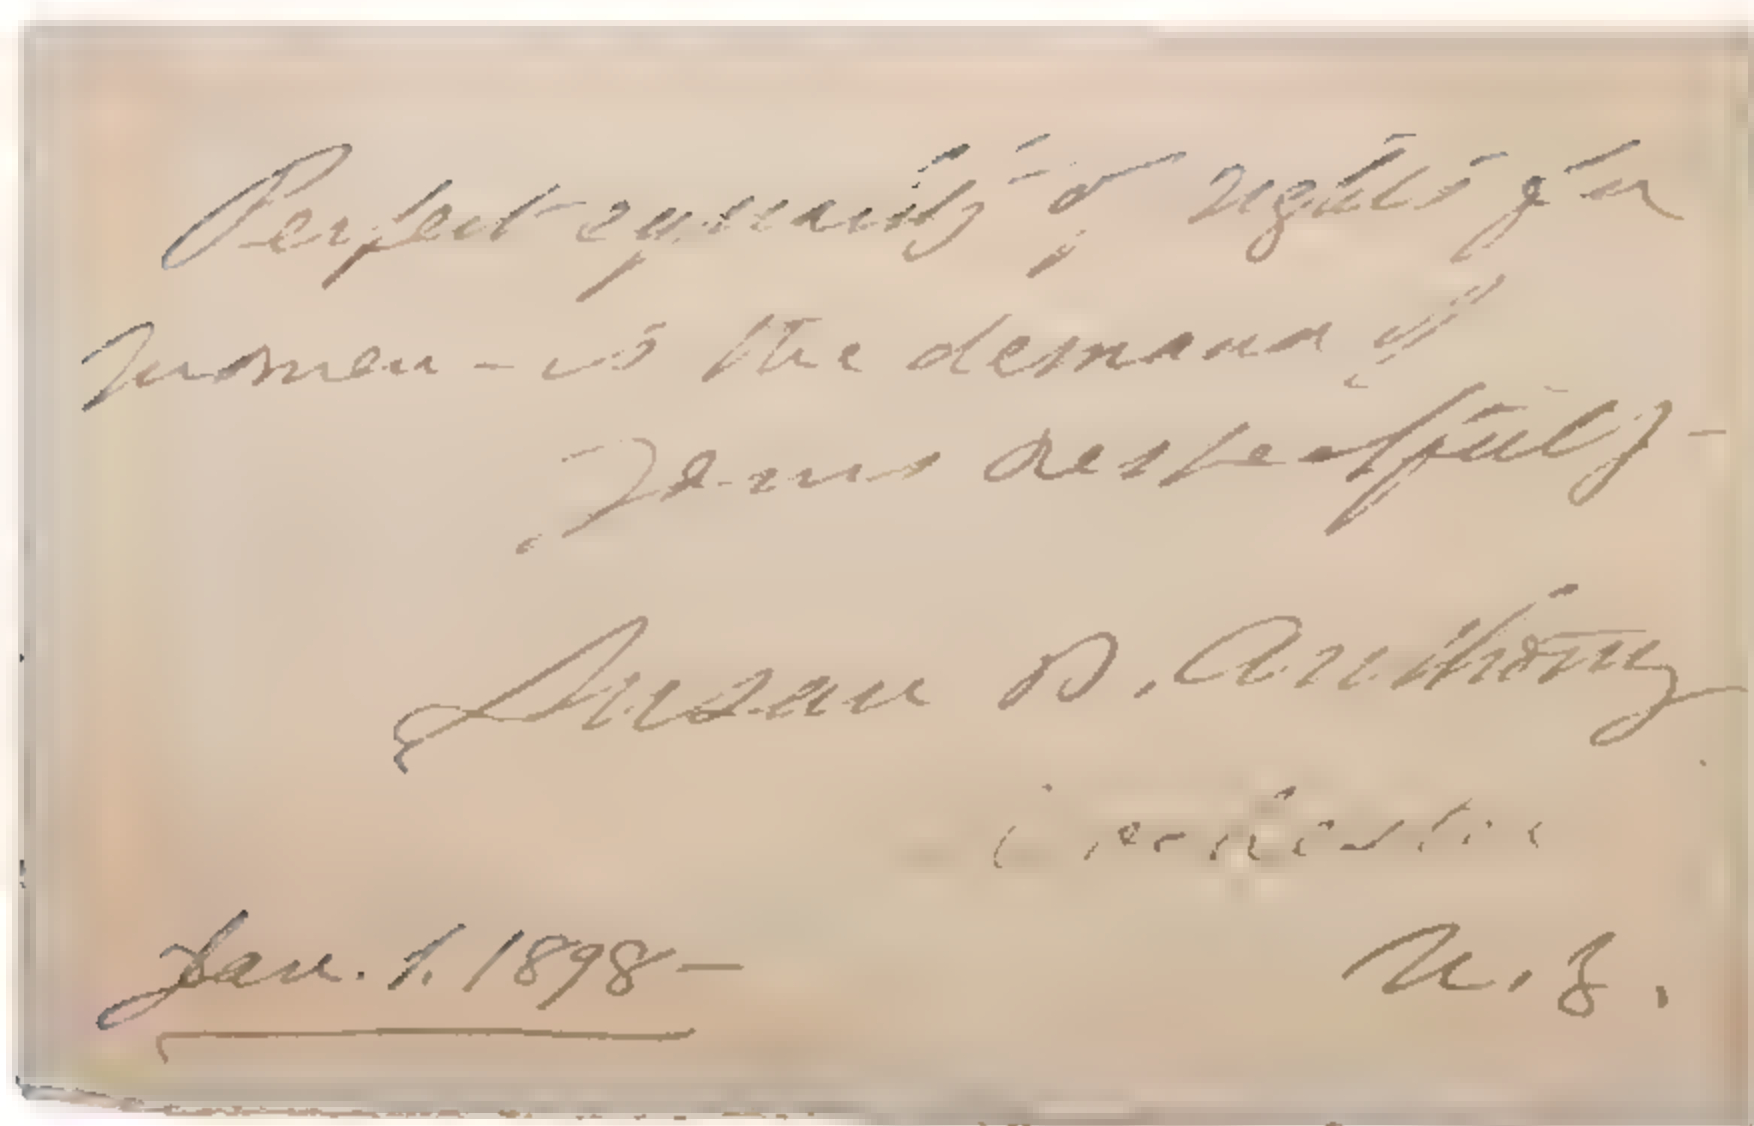 Perfect equality of rights for
women - is the demand of
Yours respectfully -
Susan B. Anthony
Rochester
Jan. 1. 1898 -
N. Y.